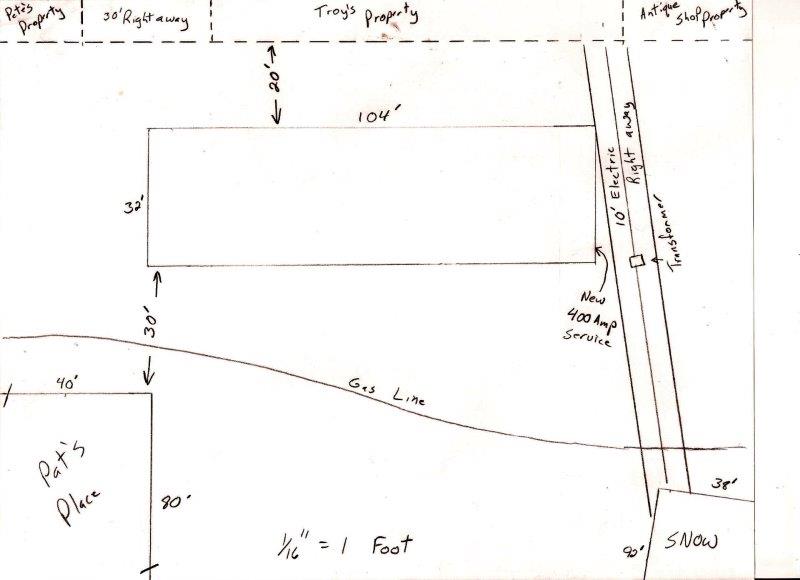 Pete's
Property
30' Right away
Troy's Property
Antique
Shop Property
20'
104'
32'
10' Electric
Right away
Transformer
New
400 Amp
Service
30'
Gas Line
40'
Pat's
Place
80'
1/16" = 1 Foot
38'
90'
SNOW